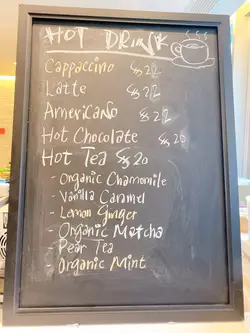 HOT DRINK
Cappaccino $ 22
Latte $ 22
Americano $ 22
Hot Chocolate $ 20
Hot Tea $ 20
- Organic Chamomile
- Vanilla Caramel
- Lemon Ginger
- Organic Matcha
- Pear Tea
- Organic Mint